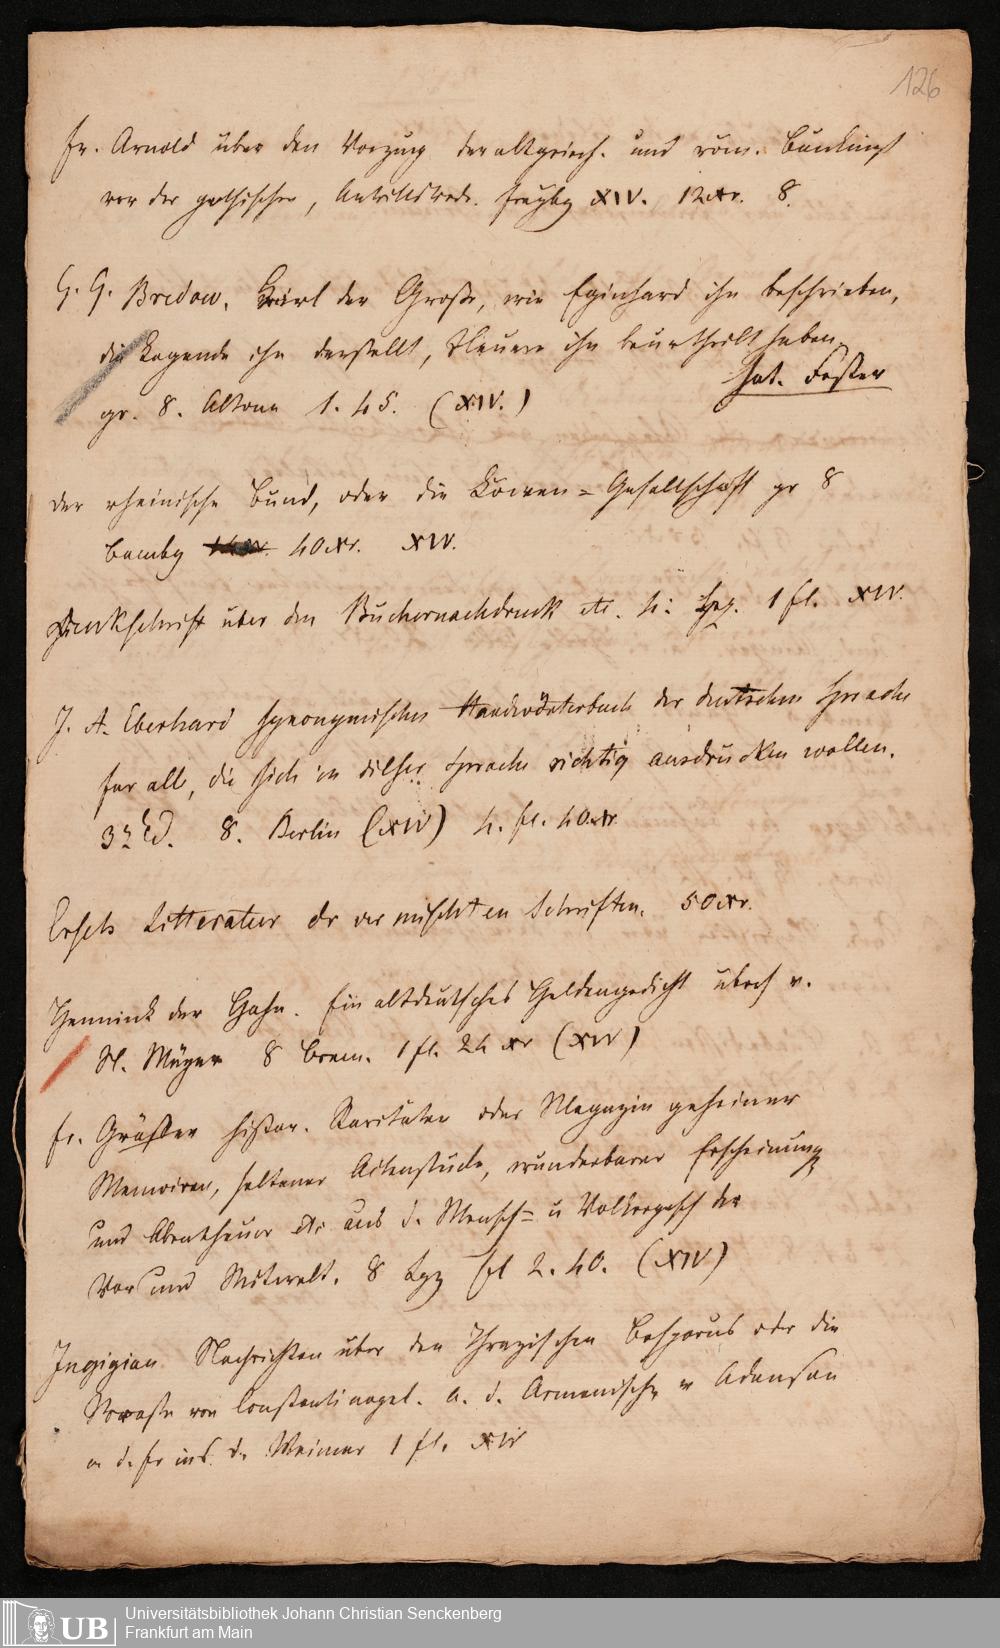 126
Fr. Arnold über den Vorzug der altgriech. und röm. Baukunst
vor der gothischen, Antrittsrede. Freybg XIV. 12 xr. 8.
G. G. Bredow. Karl der Große, wie Eginhard ihn beschrieben,
die Legende ihn darstellt, Neuere ihn beurtheilt haben.
hat. Foster
gr. 8. Altona 1. 45. (XIV.)
der rheinische Bund, oder die Löwen-Gesellschaft gr 8
Bambg 40 xr. XIV.
Denkschrift über den Büchernachdruck etc. 4: Lpz. 1 fl. XIV.
J. A. Eberhard synonymisches Handwörterbuch der deutschen Sprache
für all, die sich in dieser Sprache richtig ausdrucken wollen.
3e Ed. 8. Berlin (XIV) 4. fl. 40 xr
Ersch Litteratur der vermischten Schriften. 50 xr.
Henninck der Hahn. Ein altdeutsches Heldengedicht übers v.
N. Meyer 8 Brem. 1 fl. 24 xr (XIV)
Fr. Gräffer histor. Raritäten oder Magazin geheimer
Memoiren, seltener Actenstücke, wunderbarer Erscheinung
und Abentheuer etc aus d. Mensch- u Volkergesch der
Vor und Mitwelt. 8 Lpz fl 2. 40. (XIV)
Ingigian Nachrichten über den Thrazischen Bosporus oder die
Strasse von Constantinopel. a. d. Armenisch v
a d. Fr ins d. Weimar 1 fl. XIV
UB
Universitätsbibliothek Johann Christian Senckenberg
Frankfurt am Main